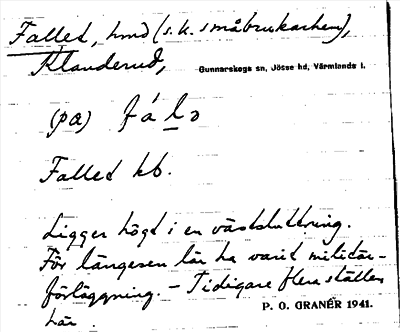 Falled, hmd (s.k. småbrukarhem),
Klanderud,
Gunnarskogs sn, Jösse hd, Värmlands l.
(pa) fá lə
Falled kb.
Ligger högt i en västsluttning.
För längesen lär ha varit militär-
förläggning. – Tidigare flera ställen
här.
P. O. GRANÉR 1941.